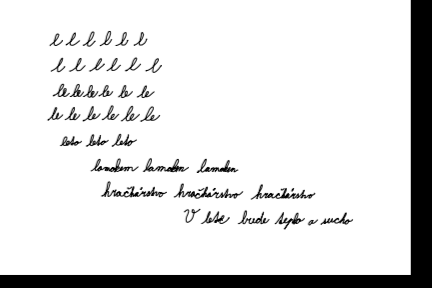 l l l l l l
l l l l l l
le le le le le le
le le le le le le
leto leto leto
lamalem lamalem lamalem
hračkárstvo hračkárstvo hračkárstvo
V lete bude teplo a sucho